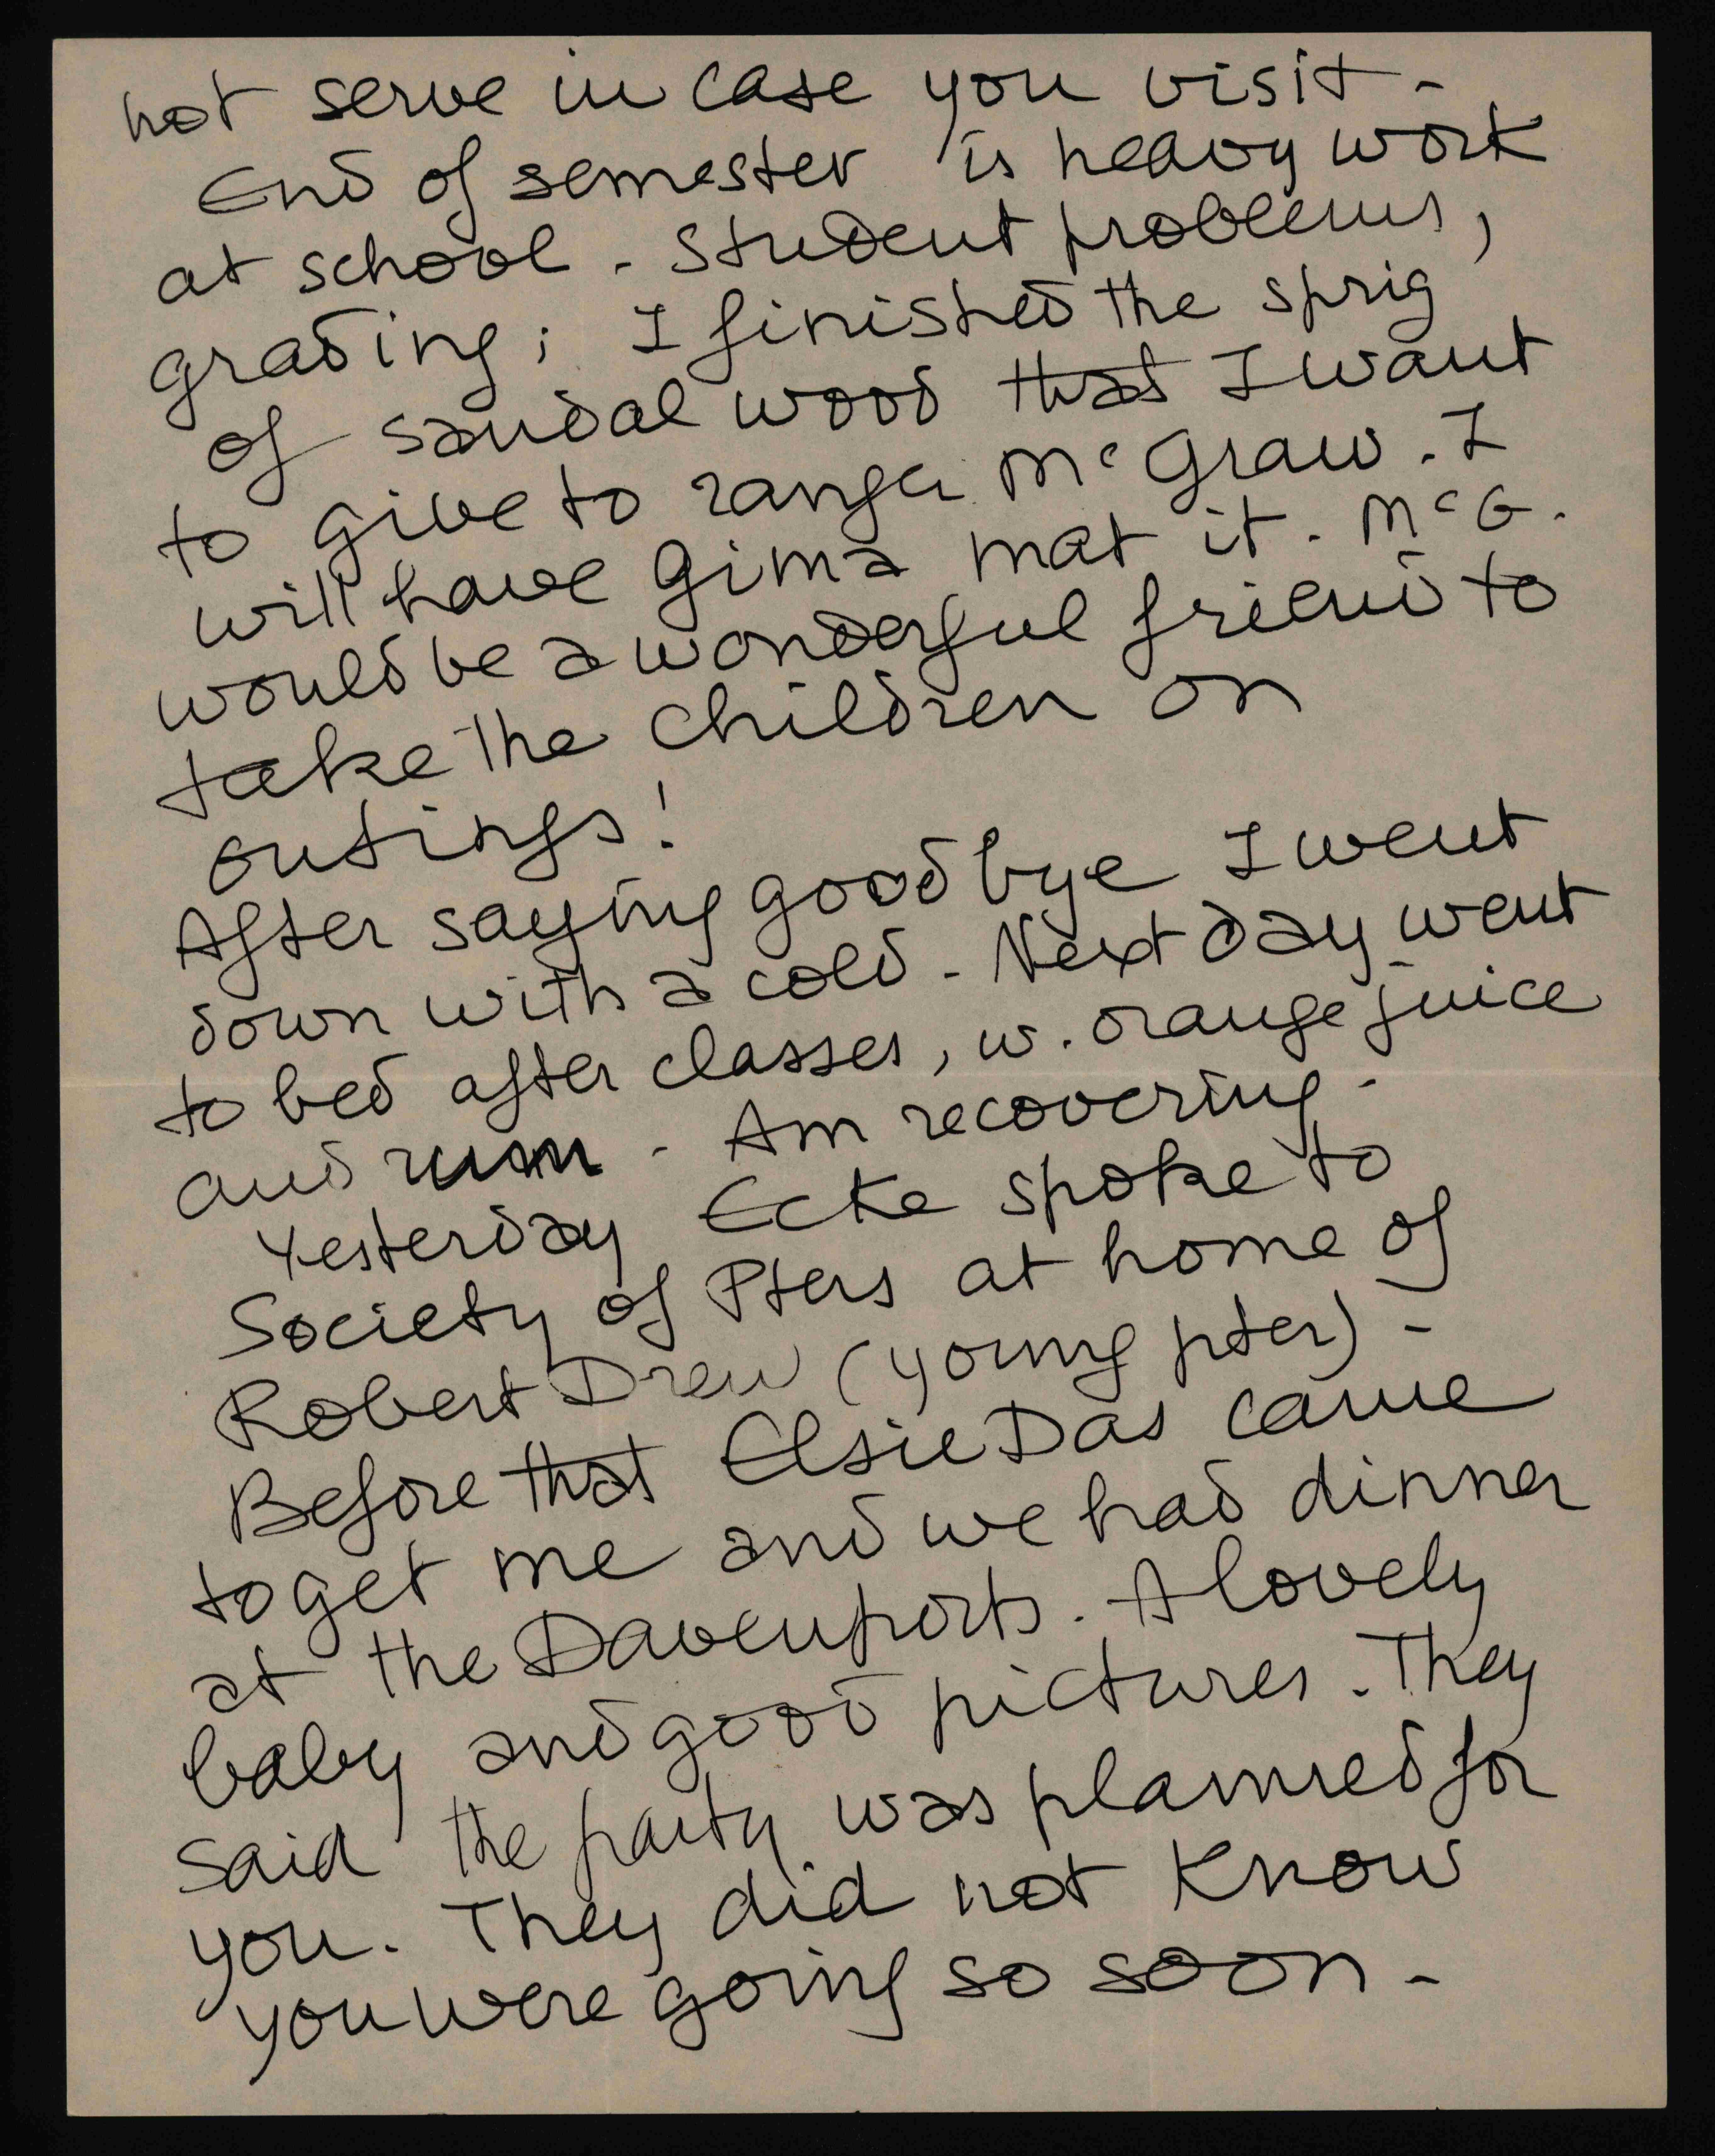 not serve in case you visit -
End of semester is heavy work
at school - Student problems,
grading; I finished the sprig
of sandal wood that I want
to give to ranger McGraw. I
will have Gima mat it. McG.
would be a wonderful friend to
take the children on
outings!
After saying goodbye I went
down with a cold - Next day went
to bed after classes, w. orange juice
and rum - Am recovering -
Yesterday Ecke spoke to
Society of Pters at home of
Robert Drew (young pter) -
Before that Elsie Das came
to get me and we had dinner
at the Davenports. A lovely
baby and good pictures. They
said the party was planned for
you. They did not know
you were going so soon -